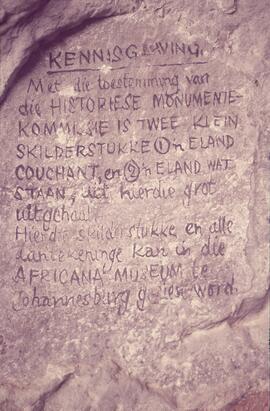 KENNISGEWING.
Met die toestemming van
die HISTORIESE MONUMENTE-
KOMMISIE IS TWEE KLEIN
SKILDERSTUKKE ① 'n ELAND
COUCHANT, en ② 'n ELAND WAT
STAAN, uit hierdie grot
uitgehaal.
Hierdie skilderstukke en alle
aantekeninge kan in die
AFRICANA MUSEUM te
Johannesburg gesien word.